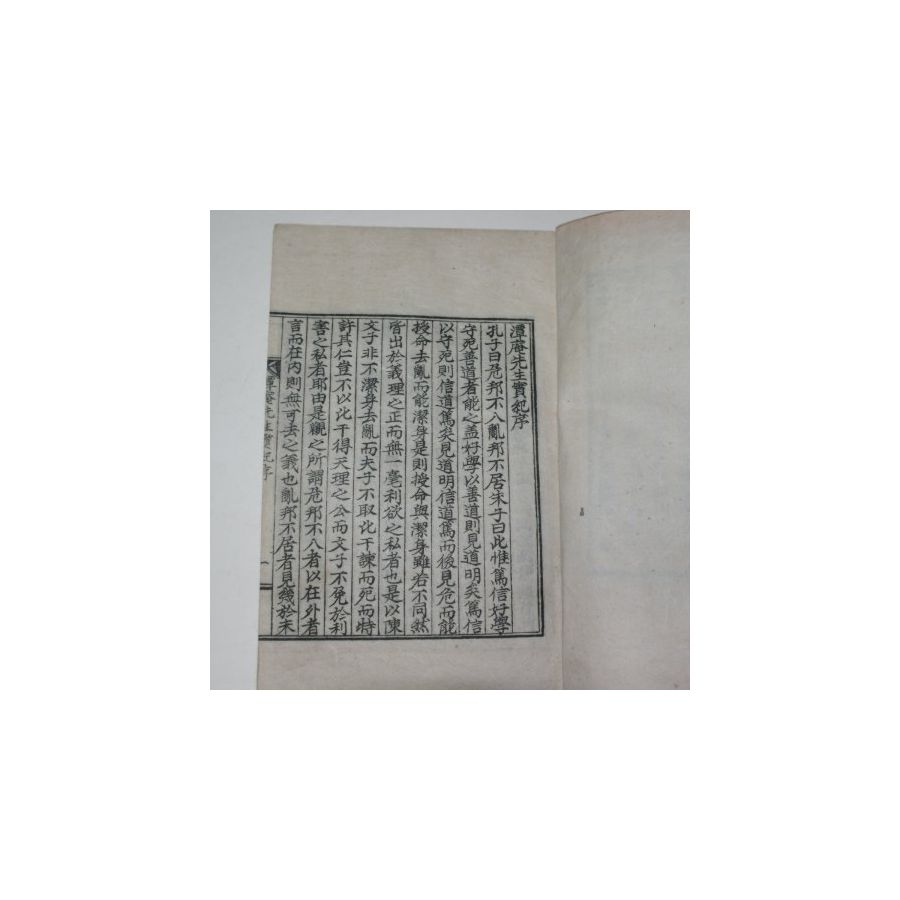 潭庵先生實紀序
孔子曰危邦不入亂邦不居朱子曰此惟篤信好學
守死善道者能之盖好學以善道則見道明矣篤信
以守死則信道篤矣見道明信道篤而後見危而能
授命去亂而能潔身是則授命與潔身雖若不同然
皆出於義理之正而無一毫利欲之私者也是以陳
文子非不潔身去亂而夫子不取比干諫而死而特
許其仁豈不以比干得天理之公而文子不免於利
害之私者耶由是觀之所謂危邦不入者以在外者
言而在內則無可去之義也亂邦不居者見幾於未
潭庵先生實紀序 一